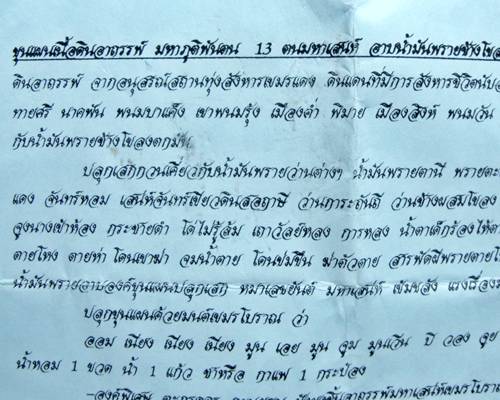 ขุนแผนเนื้อดินอาถรรพ์ มหาภูติพันตน 13 ตนมหาเสน่ห์ อาบน้ำมันพรายช้างโขล
ดินอาถรรพ์ จากอนุสรณ์สถานทุ่งสังหารเขมรแดง ดินแดนที่มีการสังหารชีวิตนับ
ทายศรี นาคพัน พนมบาเค็ง เขาพนมรุ้ง เมืองต่ำ พิมาย เมืองสิงห์ พนมวัน
กับน้ำมันพรายช้างโขลงตกมัน
ปลุกเสกกวนเคี่ยวกับน้ำมันพรายว่านต่างๆ น้ำมันพรายตานี พรายตะ
แดง จันทร์หอม เสน่ห์จันทร์เขียวดินสอฤาษี ว่านภาระถันถี ว่านช้างผสมโขลง
จูงนางเข้าห้อง กระชายดำ โด่ไม่รู้ล้ม เถาวัลย์หลง การหลง น้ำตาเด็กร้องไห้
ตายโหง ตายห่า โดนเขาฆ่า จมน้ำตาย โดนข่มขืน ฆ่าตัวตาย สารพัดผีพรายตายโ
น้ำมันพรายอาบองค์ขุนแผนปลุกเสก หมาเลขยันต์ มหาเสน่ห์ เข้มขลัง แรงเรื่อง
ปลุกขุนแผนด้วยมนต์เขมรโบราณ ว่า
ออม เนียง เนียง เนียง มูน เอย มูน จูม มูนเวีน ปี วอง จุย
น้ำหอม 1 ขวด น้ำ 1 แก้ว ชาหรือ กาแฟ 1 กระป๋อง
-องค์พิเศษ ตะกรุด